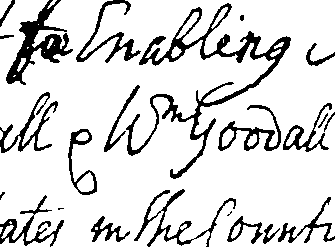 for Enabling
all & Wm Goodall
tates in the Count